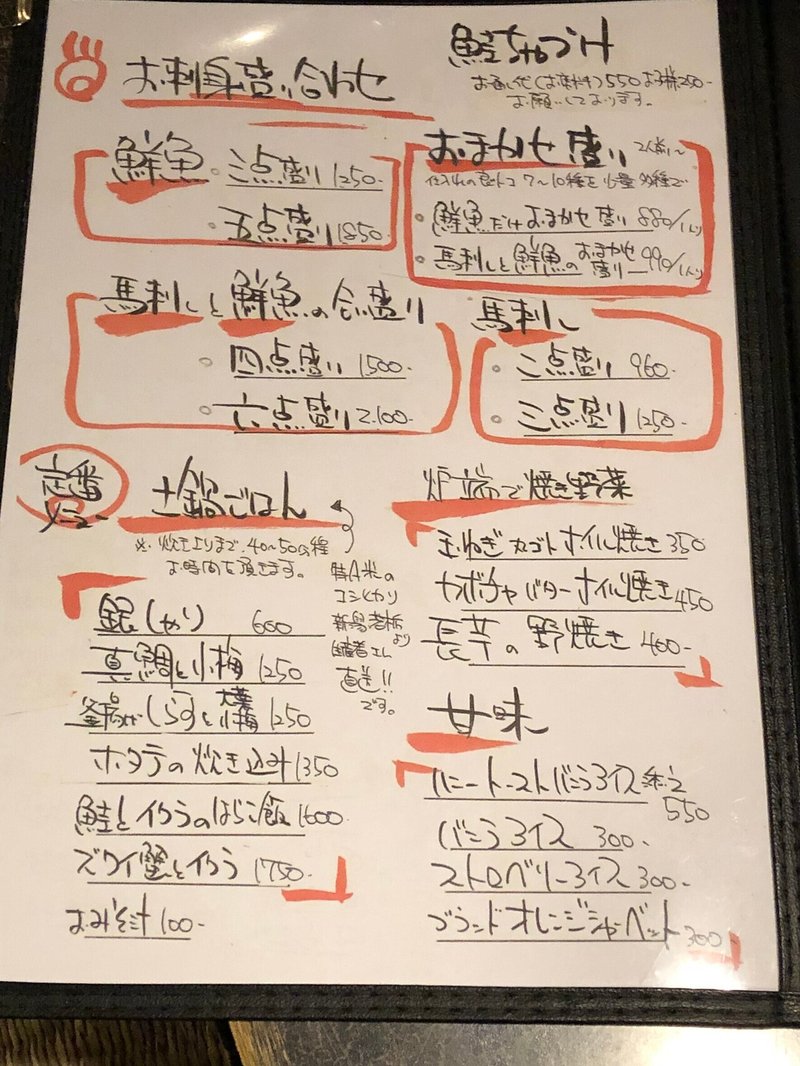 お刺身盛り合わせ
鮭ちゃづけ
お通し代(お葉料) 550 お子様250-
お願いしております。
鮮魚
三点盛り 1250-
五点盛り 1850
おまかせ盛り 2人前〜
7〜10種を少量多種で
鮮魚だけおまかせ盛り 880/1人り
馬刺しと鮮魚のおまかせ盛り 990/1人り
馬刺しと鮮魚の合盛り
四点盛り 1500-
六点盛り 2.100-
馬刺し
二点盛り 960-
三点盛り 1250-
定番メニュー
土鍋ごはん
※炊き上りまで40〜50分程
お時間を頂きます。
特A米の
コシヒカリ
新潟岩船より
直送!!
です。
銀しゃり 600
真鯛と小梅 1250
釜揚げしらすと大葉小梅 1250
ホタテの炊き込み 1350
鮭とイクラのはらこ飯 1600-
ズワイ蟹とイクラ 1750-
おみそ汁 100-
炉端で焼き野菜
玉ねぎ丸ゴトホイル焼き 350
カボチャバターホイル焼き 450
長芋の野焼き 400-
甘味
ハニートーストバニラアイス添え 550
バニラアイス 300-
ストロベリーアイス 300-
ブランドオレンジシャーベット 300-